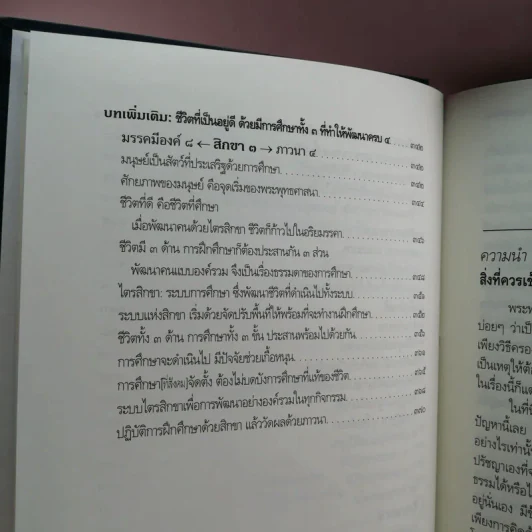 บทเพิ่มเติม: ชีวิตที่เป็นอยู่ดี ด้วยมีการศึกษาทั้ง ๓ ที่ทำให้พัฒนาครบ ๔
มรรคมีองค์ ๘ ← สิกขา ๓ → ภาวนา ๔
มนุษย์เป็นสัตว์ที่ประเสริฐด้วยการศึกษา
ศักยภาพของมนุษย์ คือจุดเริ่มของพระพุทธศาสนา
ชีวิตที่ดี คือชีวิตที่ศึกษา
เมื่อพัฒนาคนด้วยไตรสิกขา ชีวิตก็ก้าวไปในอริยมรรคา
ชีวิตมี ๓ ด้าน การฝึกศึกษาก็ต้องประสานกัน ๓ ส่วน
พัฒนาคนแบบองค์รวม จึงเป็นเรื่องธรรมดาของการศึกษา
ไตรสิกขา: ระบบการศึกษา ซึ่งพัฒนาชีวิตที่ดำเนินไปทั้งระบบ
ระบบแห่งสิกขา เริ่มด้วยจัดปรับพื้นที่ให้พร้อมที่จะทำงานฝึกศึกษา
ชีวิตทั้ง ๓ ด้าน การศึกษาทั้ง ๓ ขั้น ประสานพร้อมไปด้วยกัน
การศึกษาจะดำเนินไป มีปัจจัยช่วยเกื้อหนุน
การศึกษาจัดตั้ง ต้องไม่บดบังการศึกษาที่แท้ของชีวิต
ระบบไตรสิกขาเพื่อการพัฒนาอย่างองค์รวมในทุกกิจกรรม
ปฏิบัติการฝึกศึกษาด้วยสิกขา แล้ววัดผลด้วยภาวนา
ความนำ
สิ่งที่ควรเข้
พระพ
บ่อยๆ ว่าเป็
เพียงวิธีครอ
เป็นเหตุให้ต้
ในเรื่องนี้ก็แต
ในที่นี้
ปัญหานี้เลย
อย่างไรเท่านั้
ปรัชญาเองที่จะ
ธรรมได้หรือไ
อยู่นั่นเอง มีข้
เพียงการคิดเ